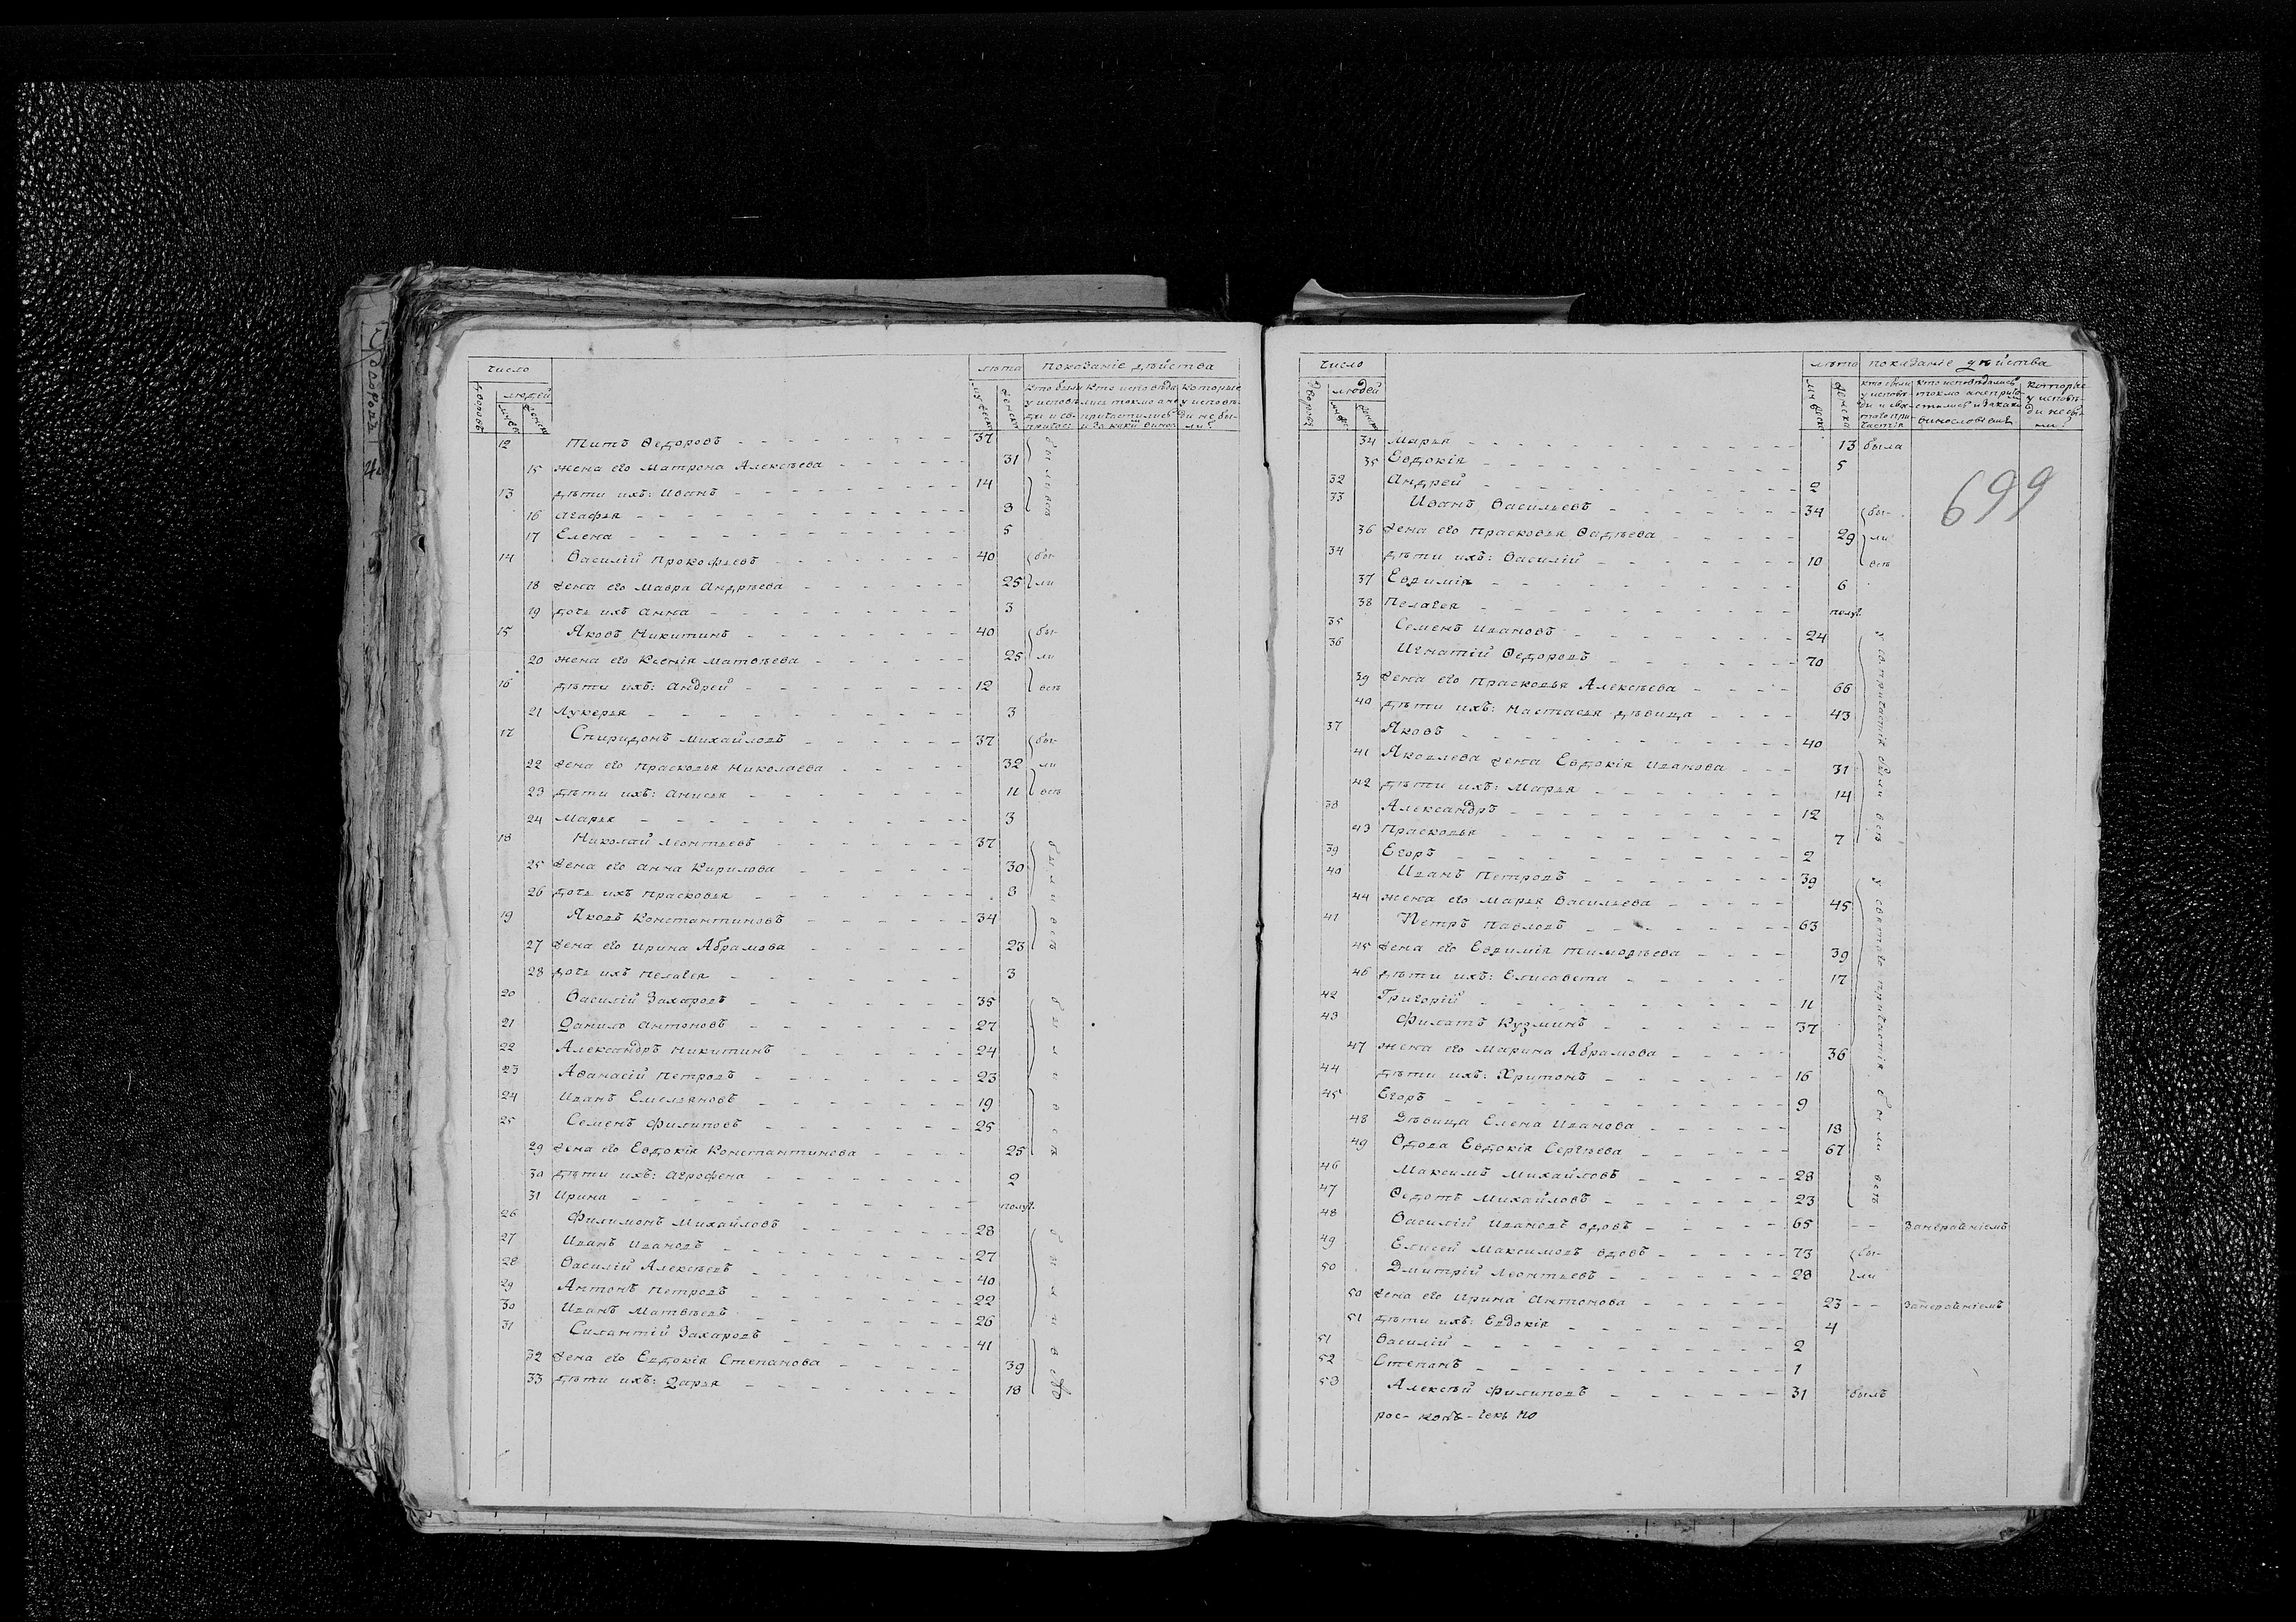 число лѣта показаніе дѣйства
дворовъ людей мужеск женск кто были кто исповѣда которые
у исповѣ лись токмо а не у исповѣ
ди и св. причастились ди не бы
ли
12 Титъ Ѳедоровъ 37
15 жена его Матрона Алексѣева 31
13 дѣти ихъ: Иванъ 14 были всѣ
16 Агафья 8
17 Елена 5
14 Василій Прокофьевъ 40 бы-
18 жена его Мавра Андрѣева 25 ли
19 дочь ихъ Анна 3
15 Яковъ Никитинъ 40 бы-
20 жена его Ксенія Матвѣева 25 ли
16 дѣти ихъ: Андрей 12 всѣ
21 Лукерья 3
17 Спиридонъ Михайловъ 37 бы-
22 жена его Прасковья Николаева 32 ли
23 дѣти ихъ: Анисья 11 всѣ
24 Марья 3
18 Николай Леонтьевъ 37
25 жена его Анна Кирилова 30 были всѣ
26 дочь ихъ Прасковья 8
19 Яковъ Константиновъ 34
27 жена его Ирина Абрамова 23
28 дочь ихъ Пелагея 3
20 Василій Захаровъ 35
21 Данило Антоновъ 27
22 Александръ Никитинъ 24 были всѣ
23 Аѳанасій Петровъ 23
24 Иванъ Емельяновъ 19
25 Семенъ Филиповъ 25
29 жена его Евдокія Константинова 25
30 дѣти ихъ: Агрофена 2
31 Ирина полуг.
26 Филимонъ Михайловъ 28
27 Иванъ Ивановъ 27
28 Василій Алексѣевъ 40 были всѣ
29 Антонъ Петровъ 22
30 Иванъ Матвѣевъ 26
31 Силантій Захаровъ 41
32 жена его Евдокія Степанова 39
33 дѣти ихъ: Дарья 18
число лѣта показаніе дѣйства
дворовъ людей кто были кто исповѣдались которые
у исповѣ токмо а не прича у исповѣ-
ди и свя- стились и за каки ди не бы-
таго при- ли
частія винословіемъ
34 Марья 13 была
35 Евдокія 5
32 Андрей 2
699
33 Иванъ Васильевъ 34 бы-
36 жена его Прасковья Фадѣева 29 ли
34 дѣти ихъ: Василій 10 всѣ
37 Евѳимія 6
38 Пелагея полуг.
35 Семенъ Ивановъ 24
36 Игнатій Ѳедоровъ 70
39 жена его Прасковья Алексѣева 66
40 дѣти ихъ: Настасья дѣвица 43
37 Яковъ 40 у св. причастія были всѣ
41 Яковлева жена Евдокія Иванова 31
42 дѣти ихъ: Марья 14
38 Александръ 12
43 Прасковья 7
39 Егоръ 2
40 Иванъ Петровъ 39
44 жена его Марья Васильева 45
41 Петръ Павловъ 63
45 жена его Евѳимія Тимоѳѣева 39
46 дѣти ихъ: Елисавета 17
42 Григорій 11
43 Филатъ Кузминъ 37 у святаго причастія были всѣ
47 жена его Марина Абрамова 36
44 дѣти ихъ: Хритонъ 16
45 Егоръ 9
48 Дѣвица Елена Иванова 18
49 Вдова Евдокія Сергѣева 67
46 Максимъ Михайловъ 28
47 Ѳедотъ Михайловъ 23
48 Василій Ивановъ вдовъ 65
49 Елисей Максимовъ вдовъ 73 бы-
50 Дмитрій Леонтьевъ 28 ли
50 жена его Ирина Антонова 23
51 дѣти ихъ: Евдокія 4
51 Василій 2
52 Степанъ 1
53 Алексѣй Филиповъ 31 былъ